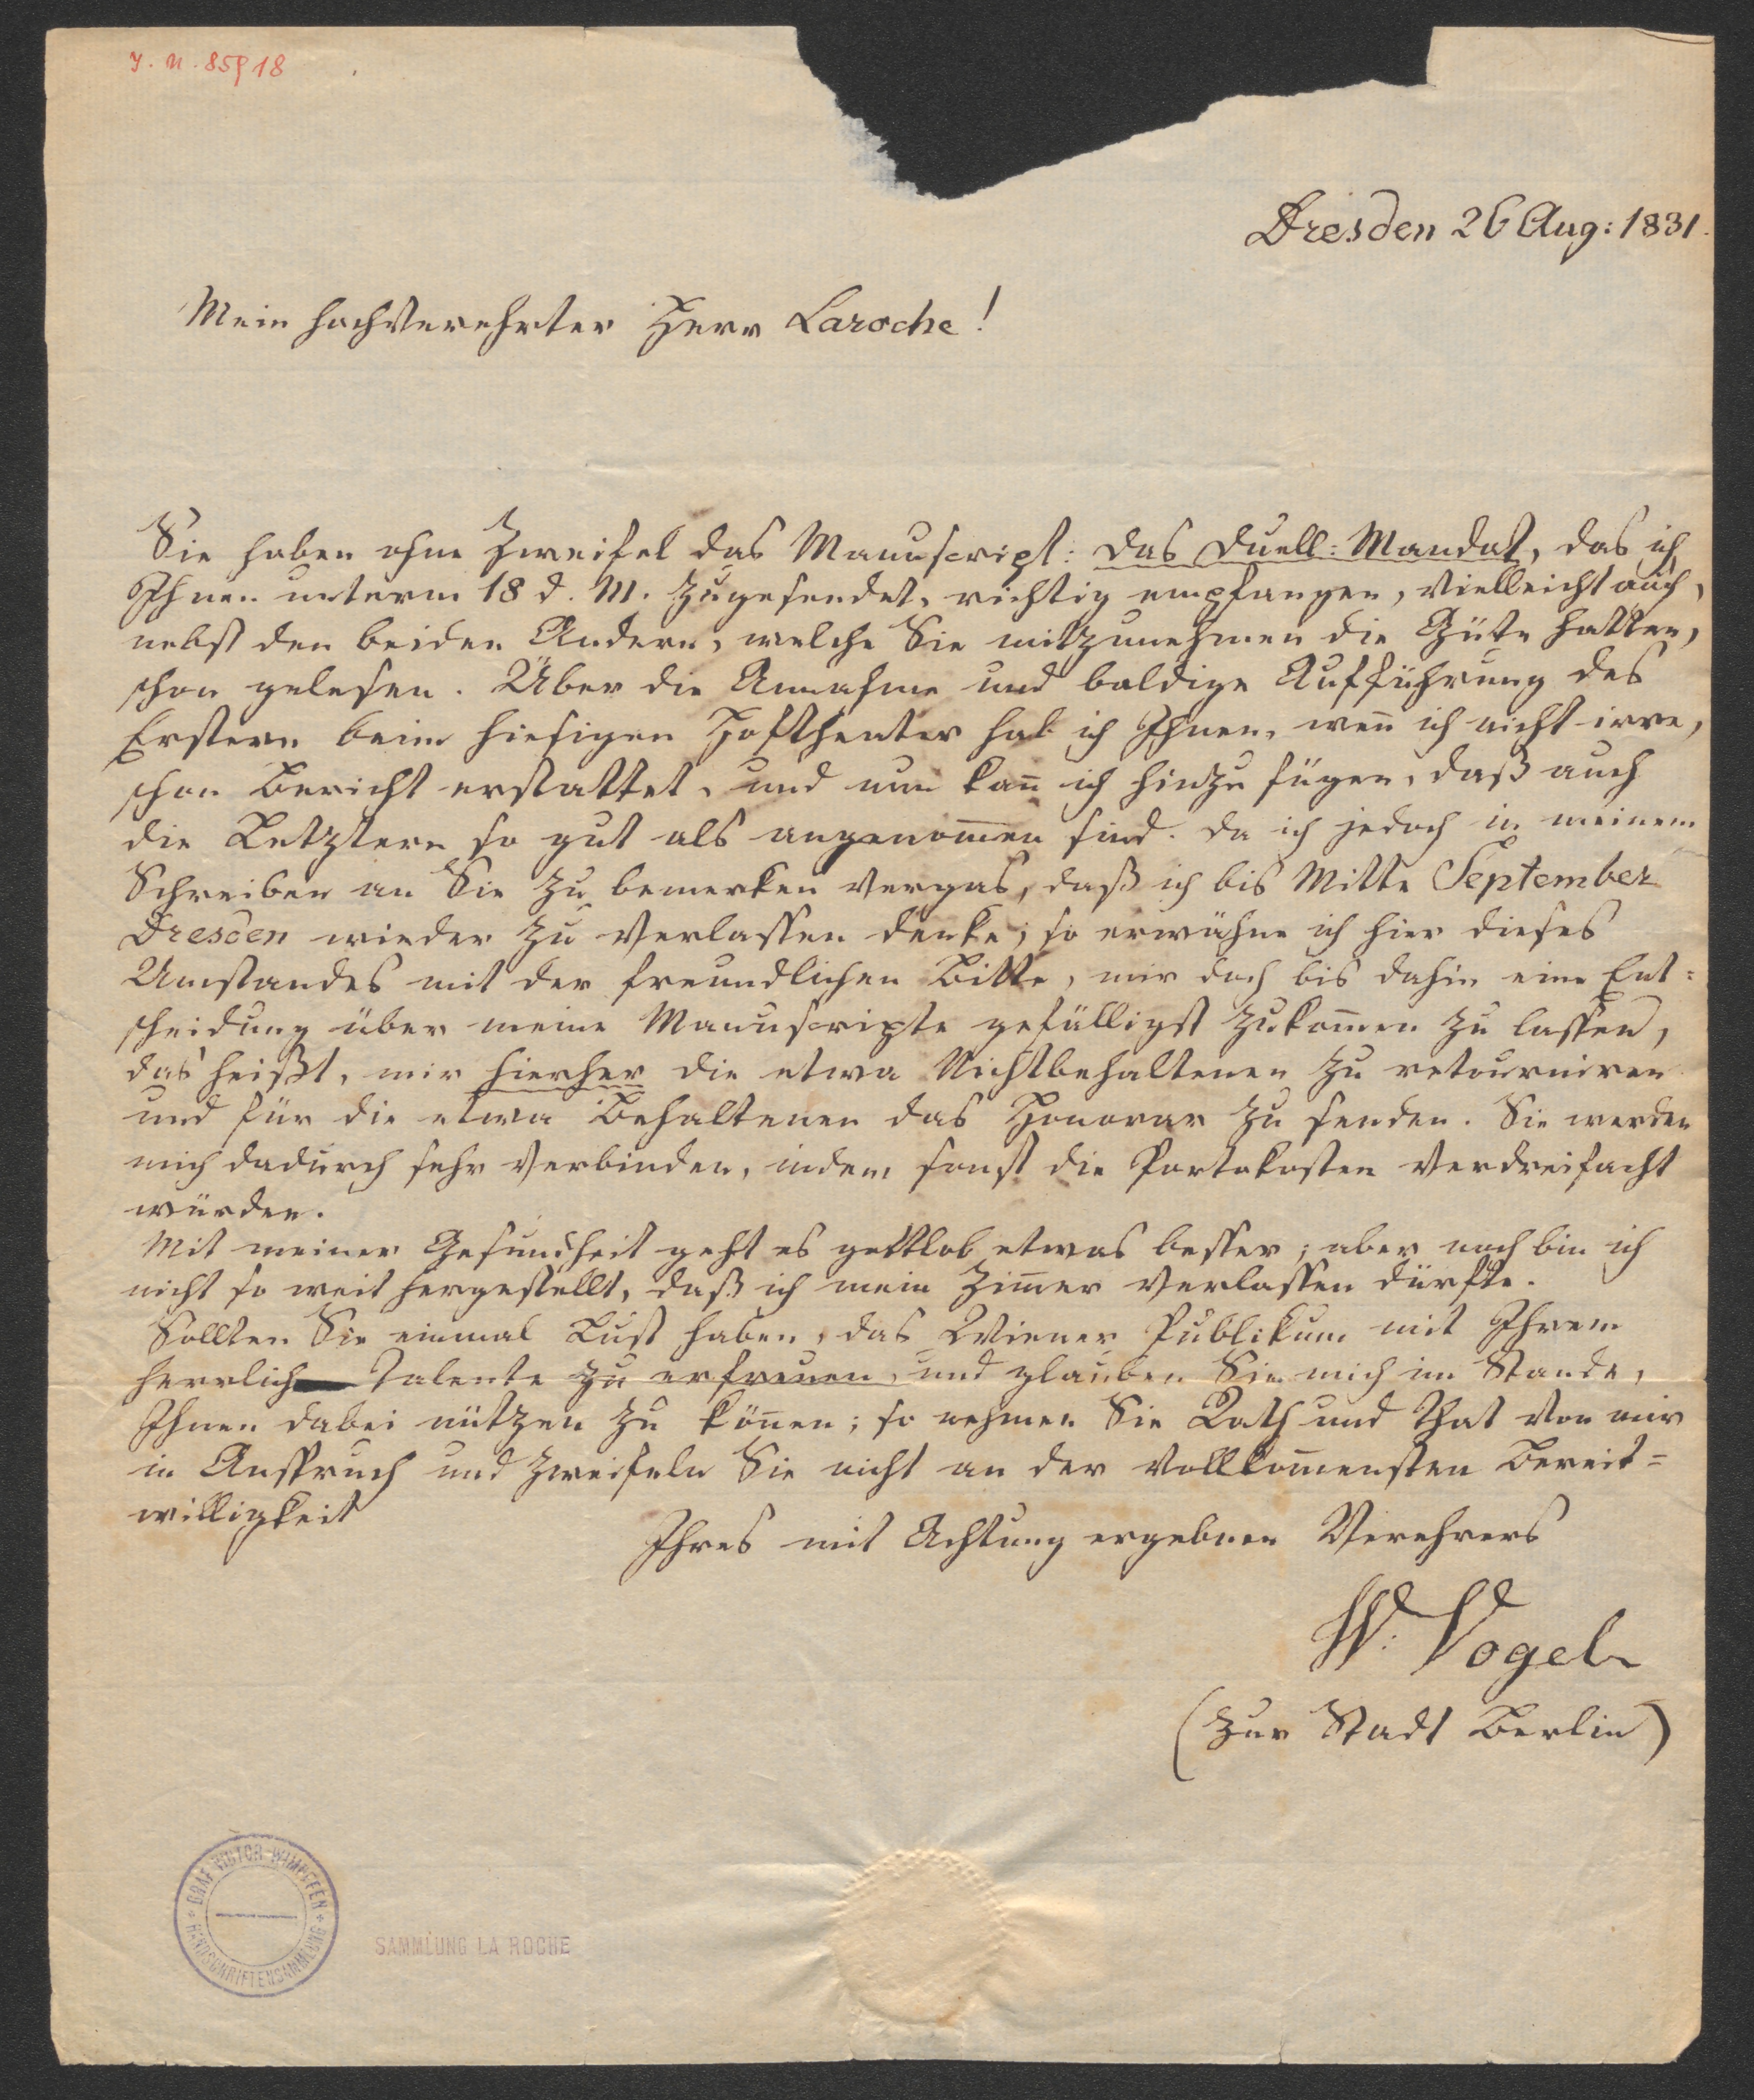 J. N. 85918
Dresden 26 Aug: 1831.
Mein hochverehrter Herr Laroche!
Sie haben ohne Zweifel das Manuscript: das Duell-Mandat, das ich
Ihnen unterm 18 d. M. zugesendet, richtig empfangen, vielleicht auch,
nebst den beiden Andern, welche Sie mitzunehmen die Güte hatten,
schon gelesen. Über die Annahme und baldige Aufführung des
Erstern beim hiesigen Hoftheater hab ich Ihnen, wen̅ ich nicht irre,
schon Bericht erstattet, und nun kan̅ ich hinzu fügen, daß auch
die Letztern so gut als angenom̅en sind. Da ich jedoch in meinem
Schreiben an Sie zu bemerken vergas, daß ich bis Mitte September
Dresden wieder zu verlassen denke; so erwähne ich hier dieses
Umstandes mit der freundlichen Bitte, mir doch bis dahin eine Ent=
scheidung über meine Manuscripte gefälligst zukom̅en zu lassen,
das heißt, mir hierher die etwa Nichtbehaltenen zu retourniren
und für die etwa Behaltenen das Honorar zu senden. Sie werden
mich dadurch sehr verbinden, indem sonst die Portokosten verdreifacht
würden.
Mit meiner Gesundheit geht es gottlob etwas besser; aber noch bin ich
nicht so weit hergestellt, daß ich mein Zim̅er verlassen dürfte.
Sollten Sie einmal Lust haben, das Wiener Publikum mit Ihrem
herrlich Talente zu erfreuen, und glauben Sie mich im Stande,
Ihnen dabei nützen zu kön̅en; so nehmen Sie Rath und That von mir
in Anspruch und zweifeln Sie nicht an der vollkom̅ensten Bereit=
willigkeit
Ihres mit Achtung ergebnen Verehrers
W. Vogel
(Zur Stadt Berlin)
GRAF VICTOR WIMPFFEN
HANDSCHRIFTENSAMMLUNG
SAMMLUNG LA ROCHE